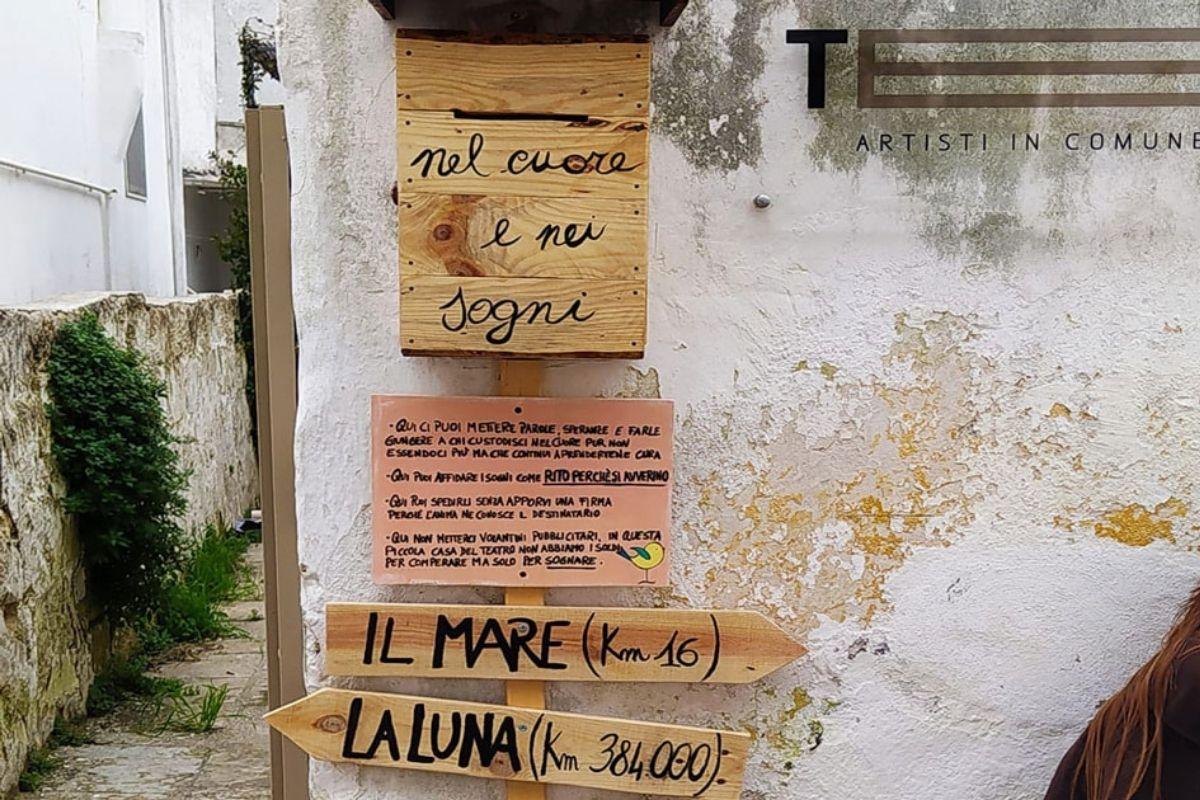 nel cuore
e nei
sogni
T
ARTISTI IN COMUNE
- QUI CI PUOI METTERE PAROLE, SPERANZE E FARLE
GIUNGERE A CHI CUSTODISCI NEL CUORE PUR NON
ESSENDOCI PIÙ MA CHE CONTINUI A PRENDERTENE CURA
- QUI PUOI AFFIDARE I SOGNI COME RITO PERCHÈ SI AVVERINO
- QUI PUOI SPEDIRLI SENZA APPORVI UNA FIRMA
PERCHÈ L'ANIMA NE CONOSCE IL DESTINATARIO
- QUI NON METTERCI VOLANTINI PUBBLICITARI, IN QUESTA
PICCOLA CASA DEL TEATRO NON ABBIAMO I SOLDI
PER COMPERARE MA SOLO PER SOGNARE.
IL MARE (Km 16)
LA LUNA (Km 384.000)